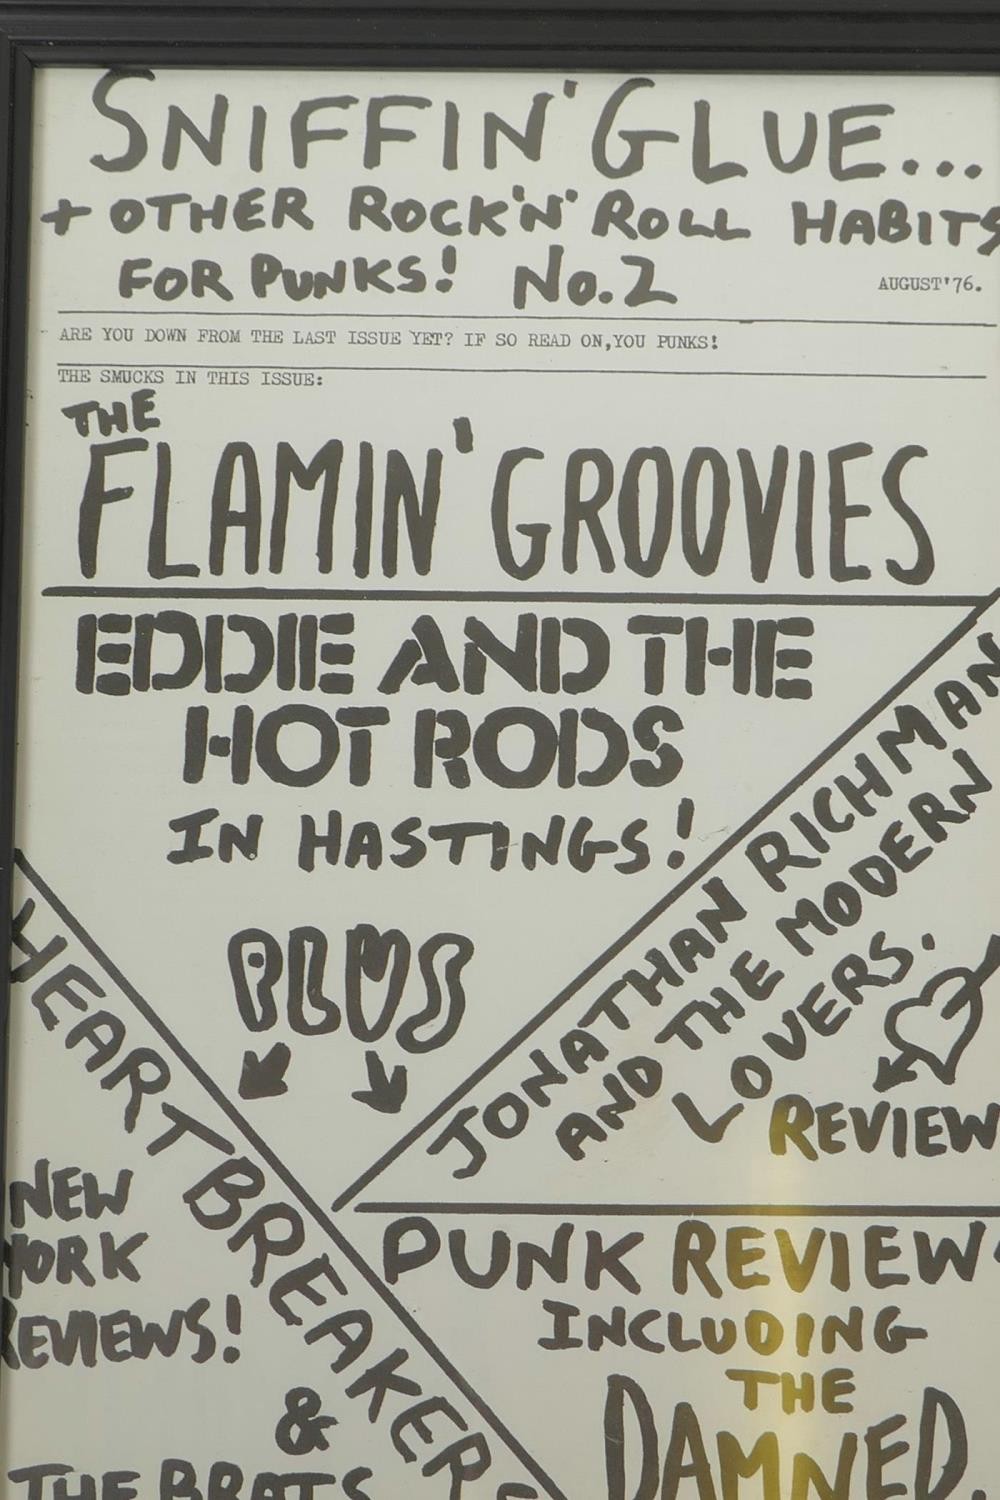 SNIFFIN' GLUE...
+ OTHER ROCK'N' ROLL HABITS
FOR PUNKS! No.2
AUGUST'76.
ARE YOU DOWN FROM THE LAST ISSUE YET? IF SO READ ON,YOU PUNKS!
THE SMUCKS IN THIS ISSUE:
THE
FLAMIN' GROOVIES
EDDIE AND THE
HOT RODS
IN HASTINGS!
PLUS
JONATHAN RICHMAN
AND THE MODERN
LOVERS.
REVIEW
HEARTBREAKERS
NEW
YORK
REVIEWS!
&
THE BRATS
PUNK REVIEW
INCLUDING
THE
DAMNED.